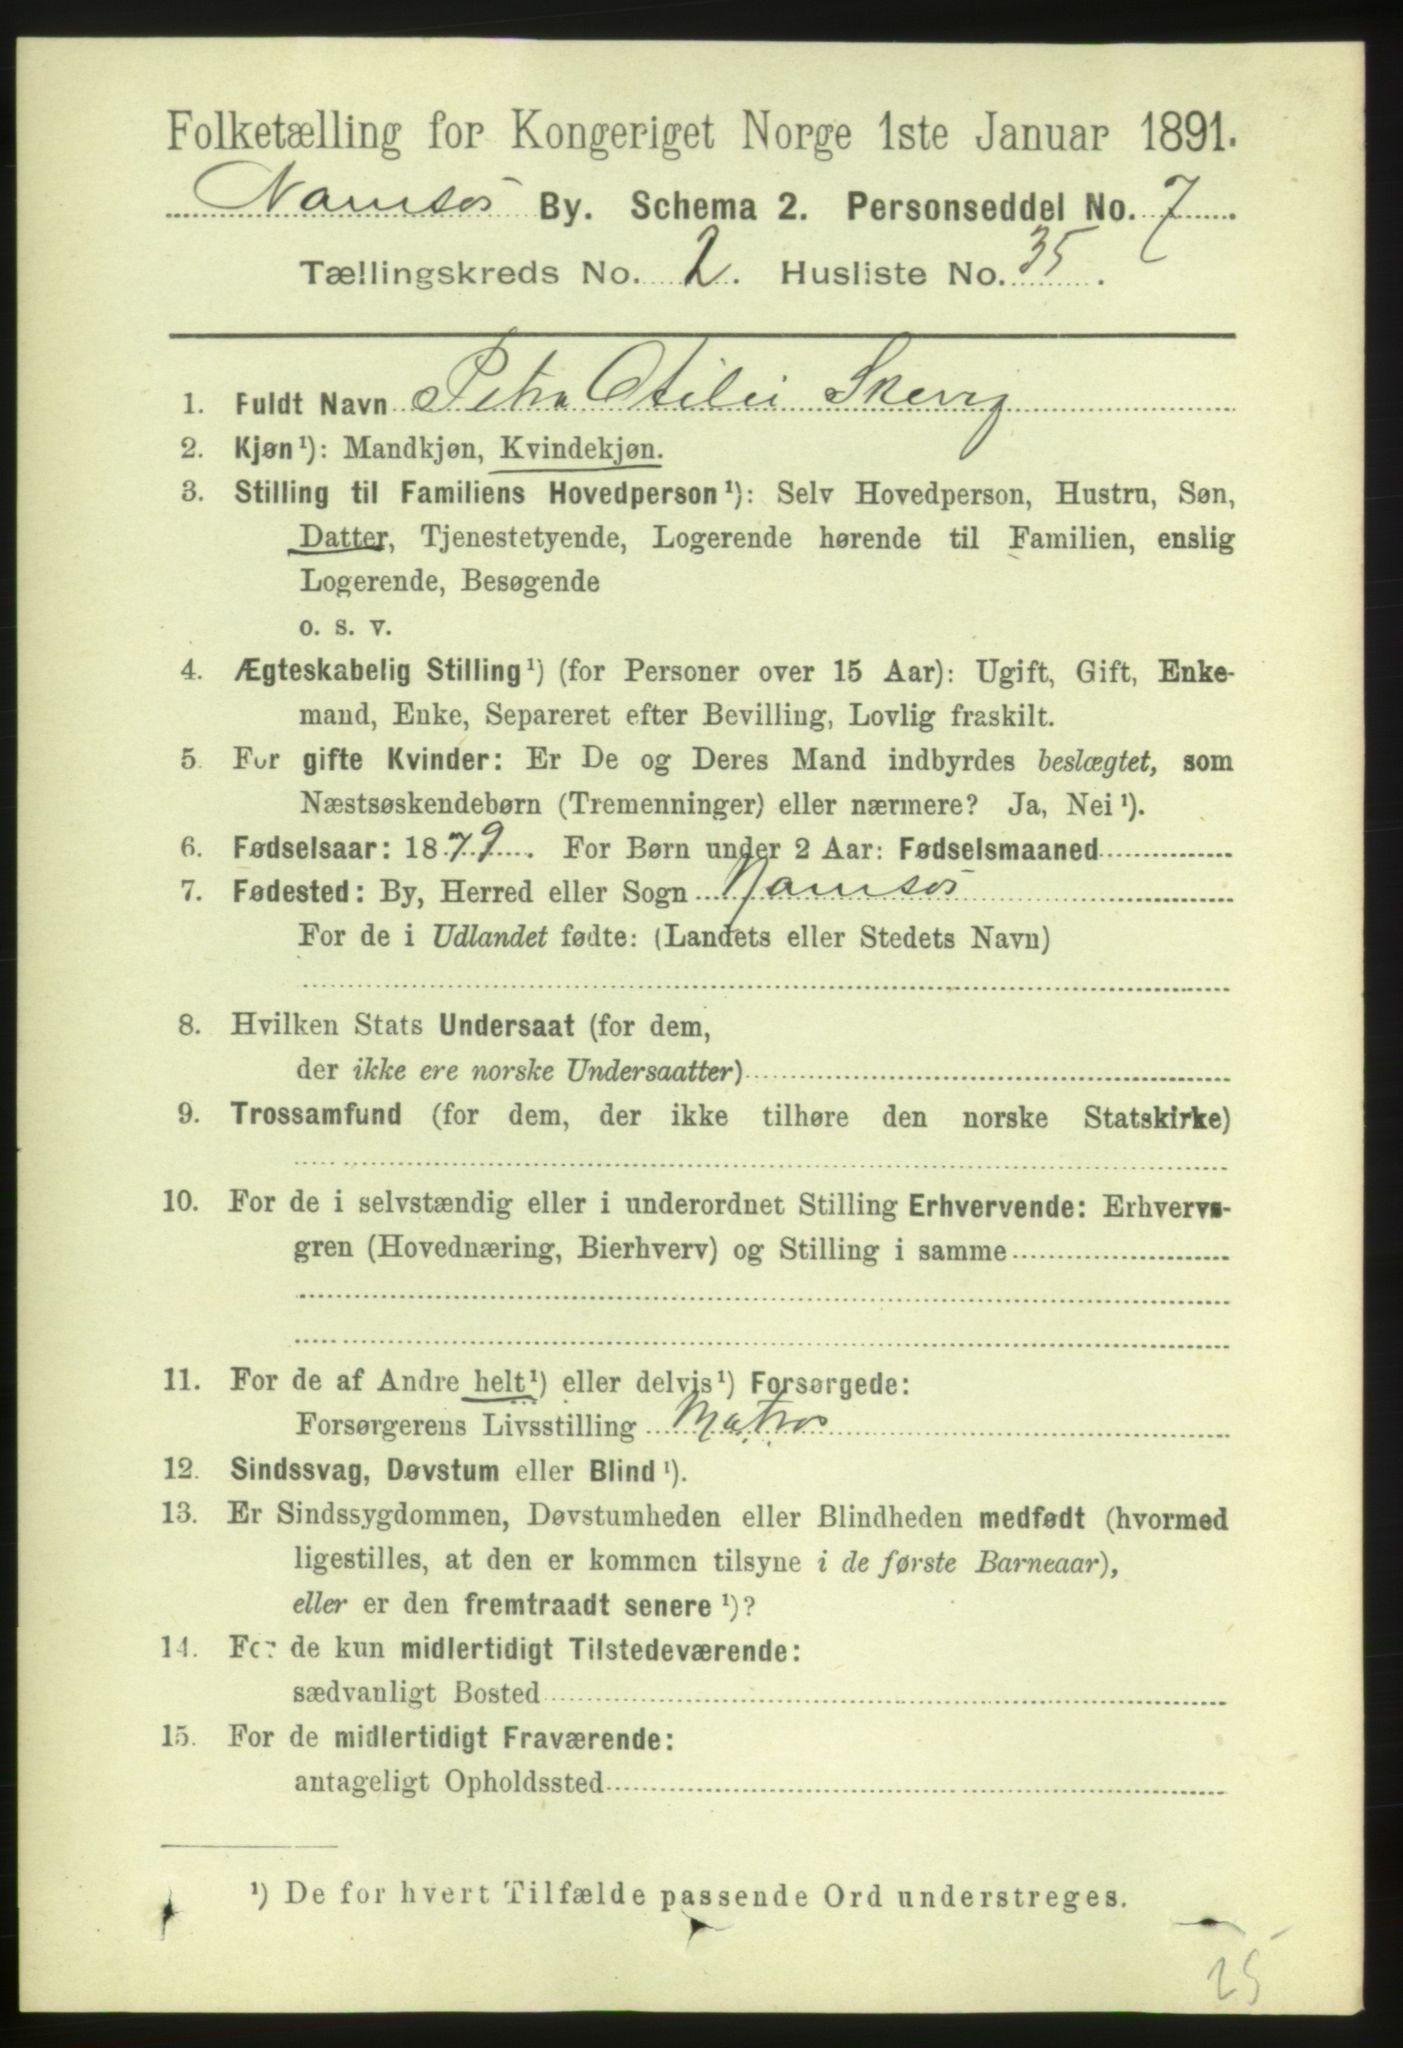 Folketælling for Kongeriget Norge 1ste Januar 1891.
Namsos By. Schema 2. Personseddel No. 7
Tællingskreds No. 2. Husliste No. 35.
1. Fuldt Navn Petra Otilie Skevig
2. Kjøn¹): Mandkjøn, Kvindekjøn.
3. Stilling til Familiens Hovedperson¹): Selv Hovedperson, Hustru, Søn,
Datter, Tjenestetyende, Logerende hørende til Familien, enslig
Logerende, Besøgende
o. s. v.
4. Ægteskabelig Stilling¹) (for Personer over 15 Aar): Ugift, Gift, Enke-
mand, Enke, Separeret efter Bevilling, Lovlig fraskilt.
5. For gifte Kvinder: Er De og Deres Mand indbyrdes beslægtet, som
Næstsøskendebørn (Tremenninger) eller nærmere? Ja, Nei¹).
6. Fødselsaar: 1879. For Børn under 2 Aar: Fødselsmaaned
7. Fødested: By, Herred eller Sogn Namsos
For de i Udlandet fødte: (Landets eller Stedets Navn)
8. Hvilken Stats Undersaat (for dem,
der ikke ere norske Undersaatter)
9. Trossamfund (for dem, der ikke tilhøre den norske Statskirke)
10. For de i selvstændig eller i underordnet Stilling Erhvervende: Erhvervs-
gren (Hovednæring, Bierhverv) og Stilling i samme
11. For de af Andre helt¹) eller delvis¹) Forsørgede:
Forsørgerens Livsstilling Matros
12. Sindssvag, Døvstum eller Blind¹).
13. Er Sindssygdommen, Døvstumheden eller Blindheden medfødt (hvormed
ligestilles, at den er kommen tilsyne i de første Barneaar),
eller er den fremtraadt senere¹)?
14. For de kun midlertidigt Tilstedeværende:
sædvanligt Bosted
15. For de midlertidigt Fraværende:
antageligt Opholdssted
¹) De for hvert Tilfælde passende Ord understreges.
25